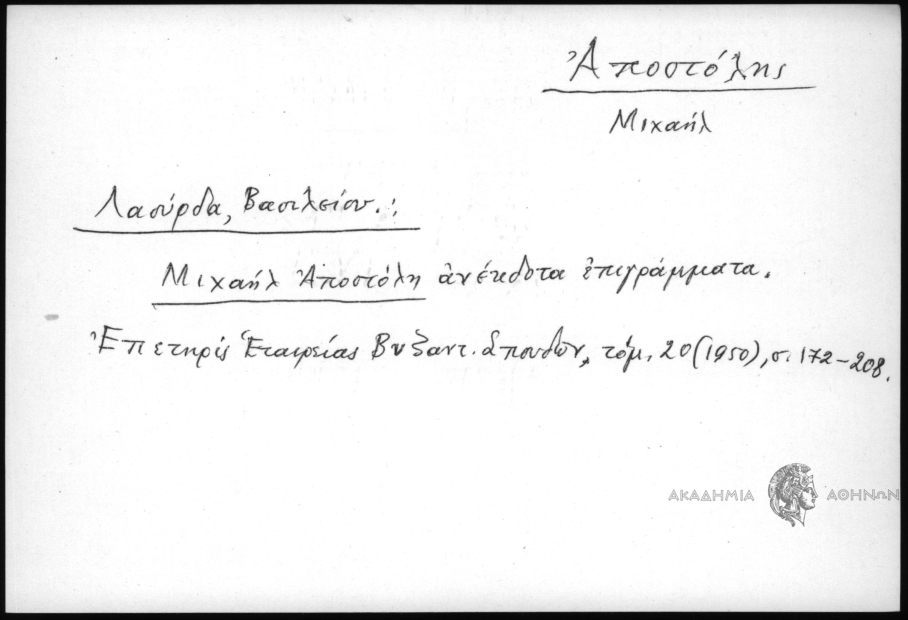 Ἀποστόλης
Μιχαήλ
Λαούρδα, Βασιλείου.:
Μιχαήλ Ἀποστόλη ἀνέκδοτα ἐπιγράμματα.
Ἐπετηρίς Ἑταιρείας Βυζαντ. Σπουδῶν, τόμ. 20 (1950), σ. 172-208.
ΑΚΑΔΗΜΙΑ ΑΘΗΝΩΝ